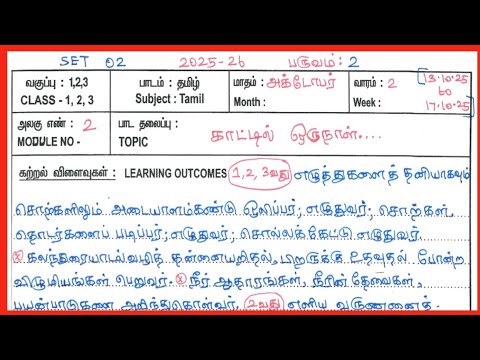 SET 02 2025-26 பருவம்: 2
வகுப்பு : 1,2,3 பாடம் : தமிழ் மாதம் : அக்டோபர் வாரம் : 2 13.10.25
CLASS - 1, 2, 3 Subject : Tamil Month : Week : to 17.10.25
அலகு எண் : 2 பாட தலைப்பு :
MODULE NO - TOPIC காட்டில் ஒருநாள்....
கற்றல் விளைவுகள் : LEARNING OUTCOMES 1,2,3வது எழுத்துகளைத் தனியாகவும்
சொற்களிலும் அடையாளம்கண்டு ஒலிப்பர்; எழுதுவர்; சொற்கள்,
தொடர்களைப் படிப்பர்; எழுதுவர்; சொல்லக்கேட்டு எழுதுவர்.
கலந்துரையாடல்வழித் தன்னையறிதல், பிறருக்கு உதவுதல் போன்ற
விழுமியங்கள் பெறுவர். நீர் ஆதாரங்கள், நீரின் தேவைகள்,
பயன்பாடுகளை அறிந்துகொள்வர். 2வது எளிய வருணனைத்